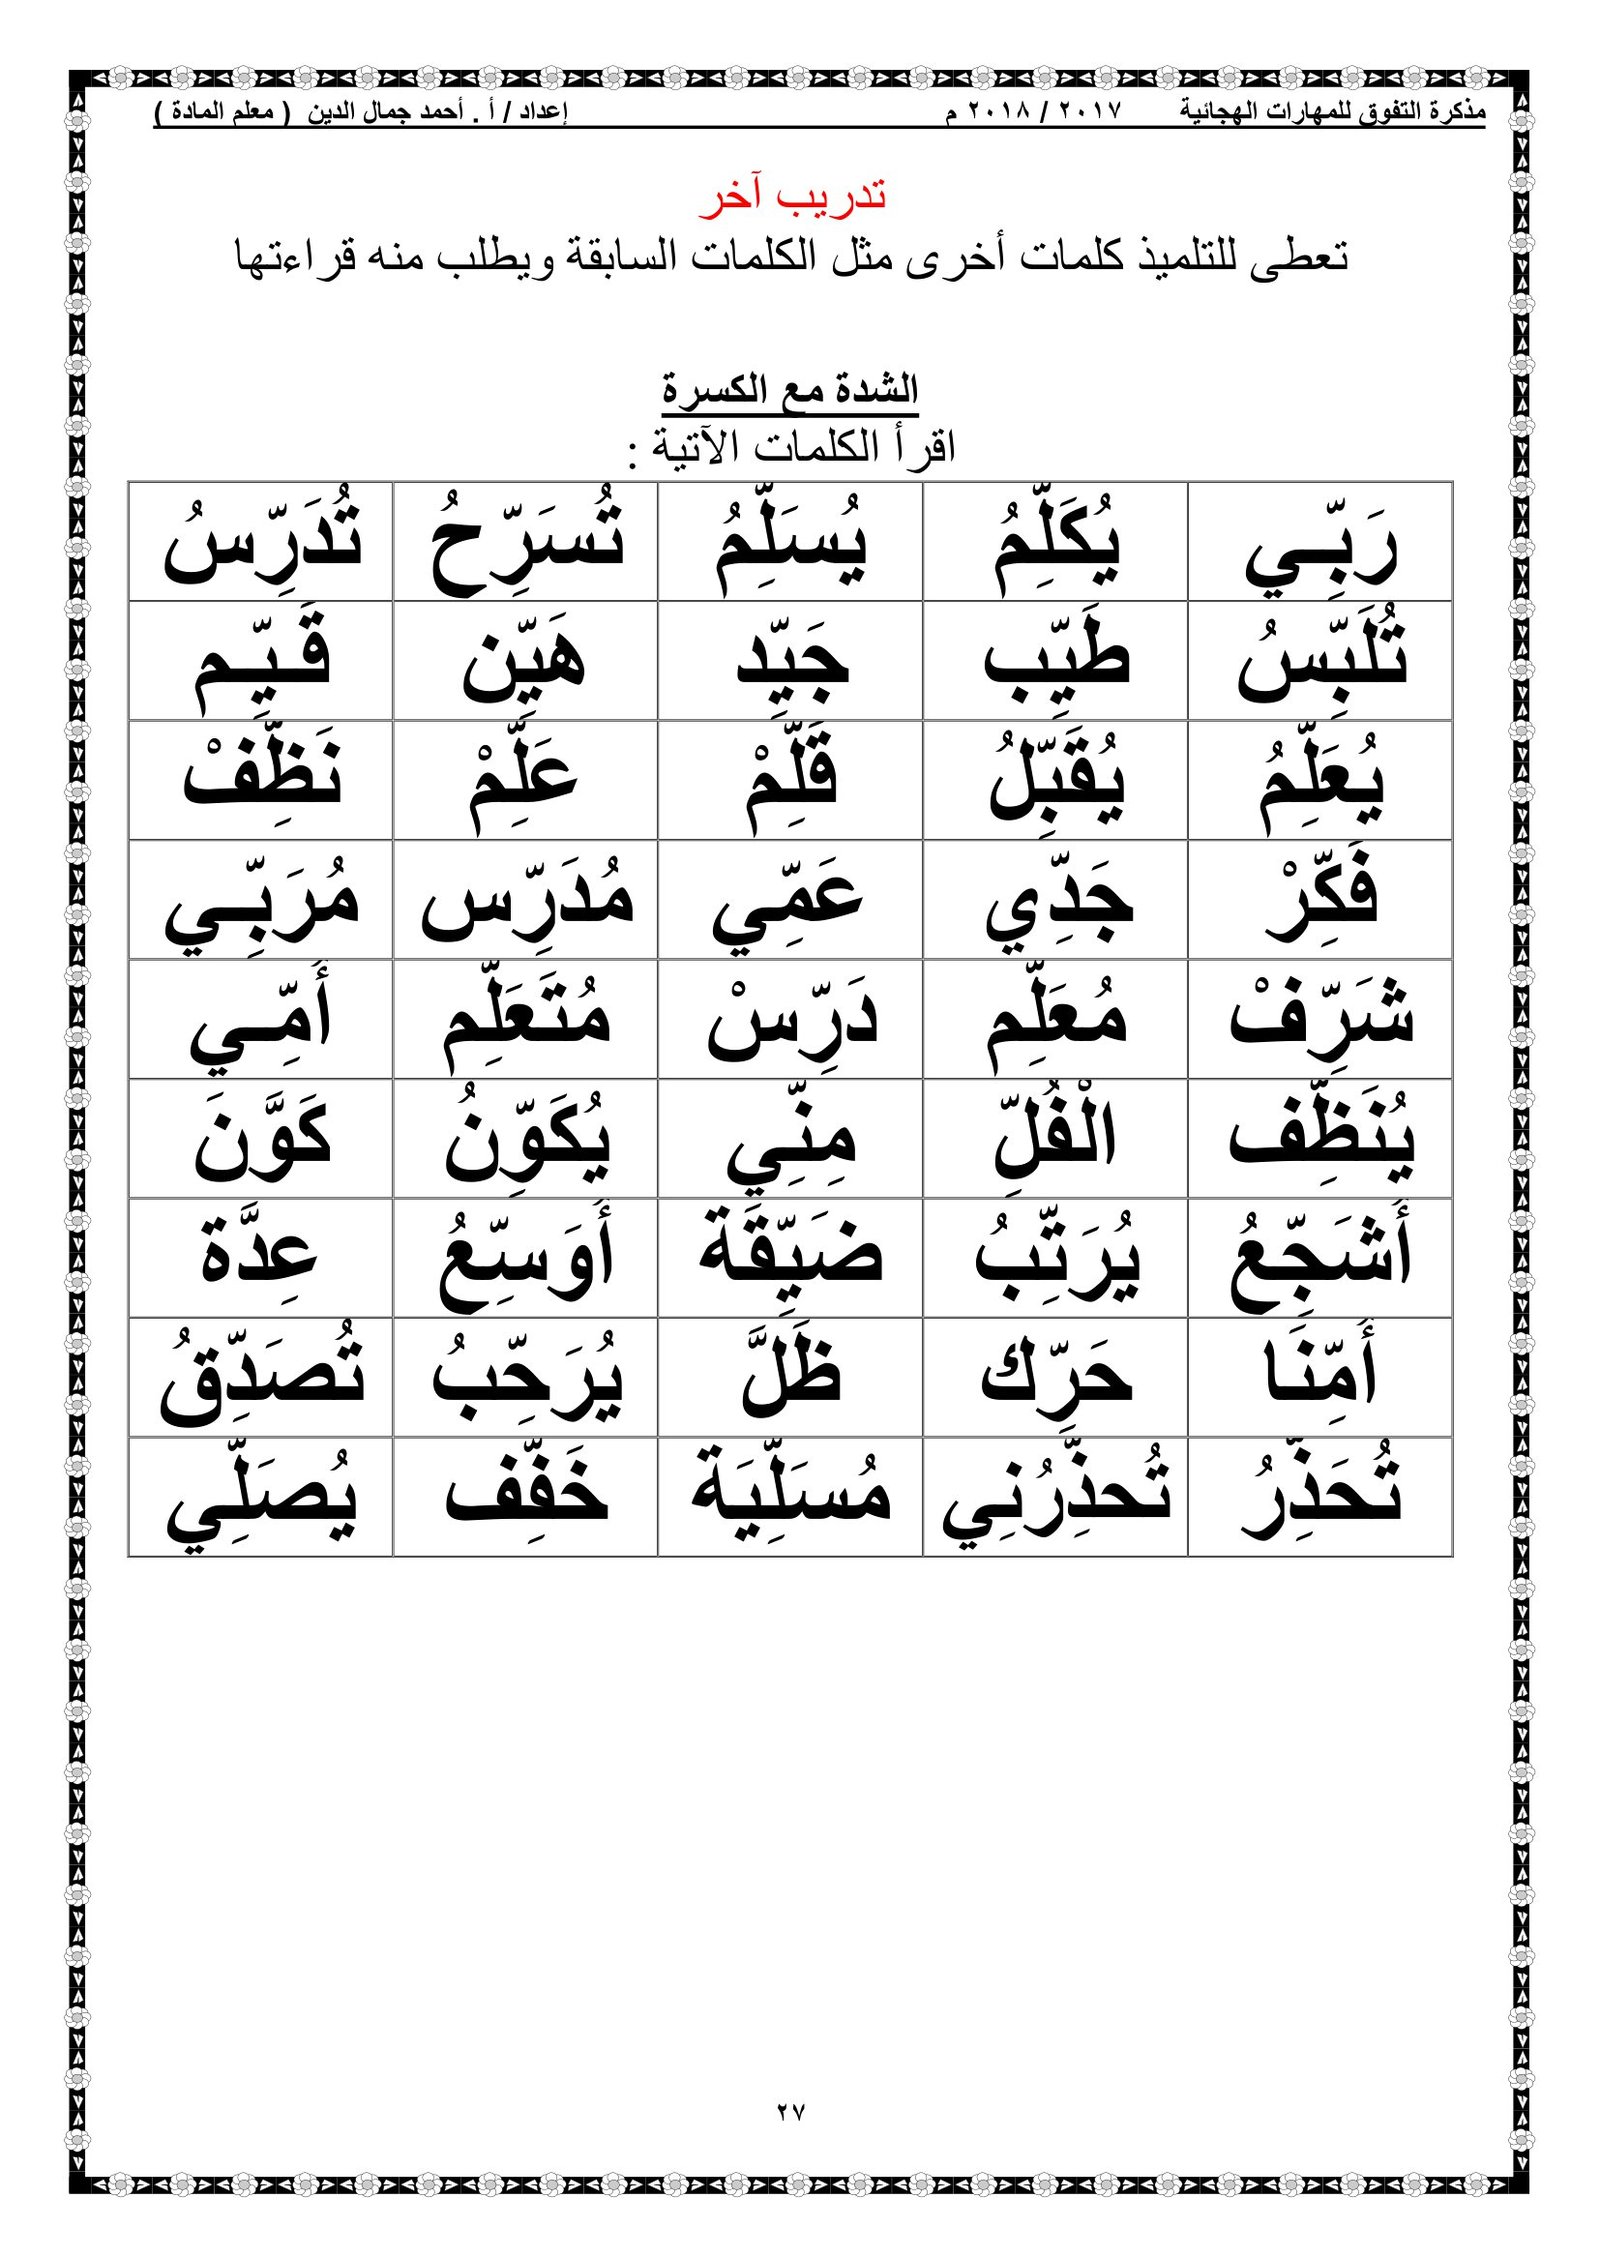 مذكرة التفوق للمهارات الهجائية ٢٠١٧ / ٢٠١٨ م إعداد / أ . أحمد جمال الدين ( معلم المادة )
تدريب آخر
تعطى للتلميذ كلمات أخرى مثل الكلمات السابقة ويطلب منه قراءتها
الشدة مع الكسرة
اقرأ الكلمات الآتية :
رَبِّـي يُكَلِّمُ يُسَلِّمُ تُسَرِّحُ تُدَرِّسُ
تُلَبِّسُ طَيِّب جَيِّد هَيِّن قَـيِّـم
يُعَلِّمُ يُقَبِّلُ قَلِّمْ عَلِّمْ نَظِّفْ
فَكِّرْ جَدِّي عَمِّي مُدَرِّس مُرَبِّـي
شَرِّفْ مُعَلِّم دَرِّسْ مُتَعَلِّم أُمِّـي
يُنَظِّف الْفُلِّ مِنِّـي يُكَوِّنُ كَوَّنَ
أُشَجِّعُ يُرَتِّبُ ضَيِّقَة أُوَسِّعُ عِدَّة
أُمِّنَـا حَرِّك ظَلَّ يُرَحِّبُ تُصَدِّقُ
تُحَذِّرُ تُحذِّرُنِي مُسَلِّيَة خَفِّف يُصَلِّي
٢٧